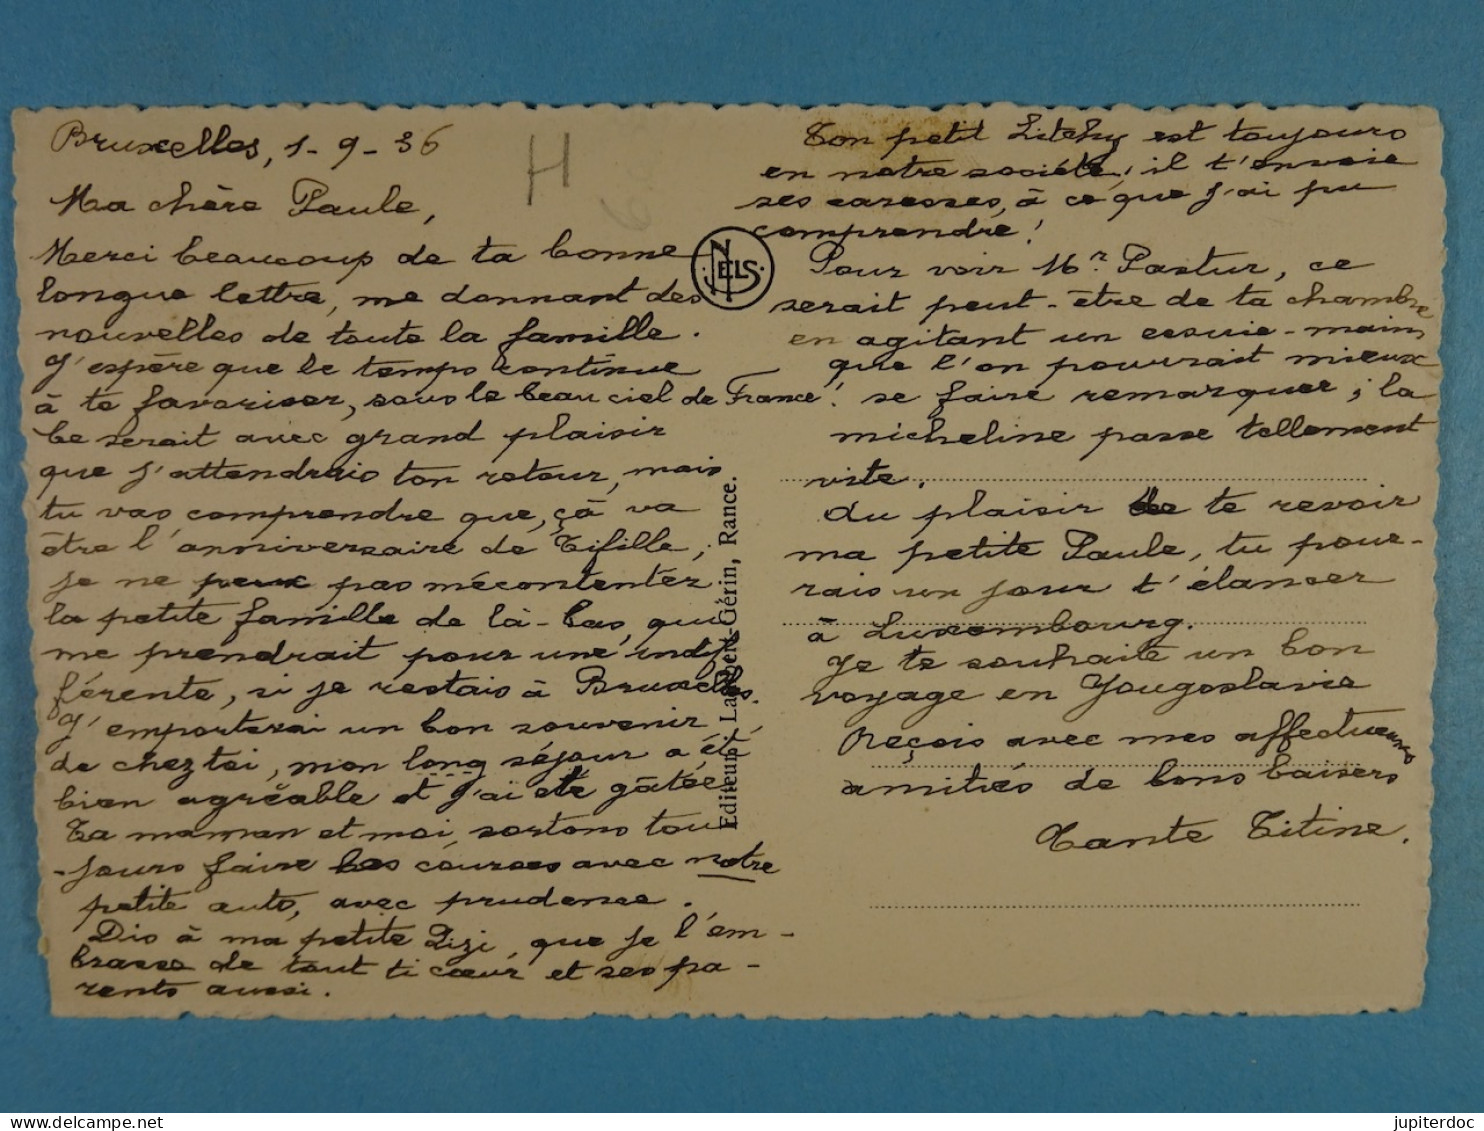 Bruxelles, 1-9-36
H
Ma chère Paule,
Merci beaucoup de ta bonne
longue lettre, me donnant des
nouvelles de toute la famille.
J'espère que le temps continue
à te favoriser, sous le beau ciel de France!
Ce serait avec grand plaisir
que j'attendrais ton retour, mais
tu vas comprendre que, çà va
être l'anniversaire de Tifille;
je ne peux pas mécontenter
la petite famille de là-bas, qui
me prendrait pour une indif
férente, si je restais à Bruxelles.
J'emporterai un bon souvenir
de chez toi, mon long séjour a été
bien agréable et j'ai été gâtée
Ta maman et moi, sortons tou
-jours faire les courses avec notre
petite auto, avec prudence.
Dis à ma petite Zizi, que je l'em-
brasse de tout ti cœur et ses pa-
rents aussi.
NELS
Editeur: Lambert-Gérin, Rance.
Ton petit Litchy est toujours
en notre société, il t'envoie
ses caresses, à ce que j'ai pu
comprendre!
Pour voir Mr Pastur, ce
serait peut-être de ta chambre
en agitant un essuie-mains
que l'on pourrait mieux
se faire remarquer; la
micheline passe tellement
vite.
Au plaisir de te revoir
ma petite Paule, tu pour-
rais un jour t'élancer
à Luxembourg.
Je te souhaite un bon
voyage en Yougoslavie
Reçois avec mes affectueuses
amitiés de bons baisers
Tante Titine.
jupiterdoc